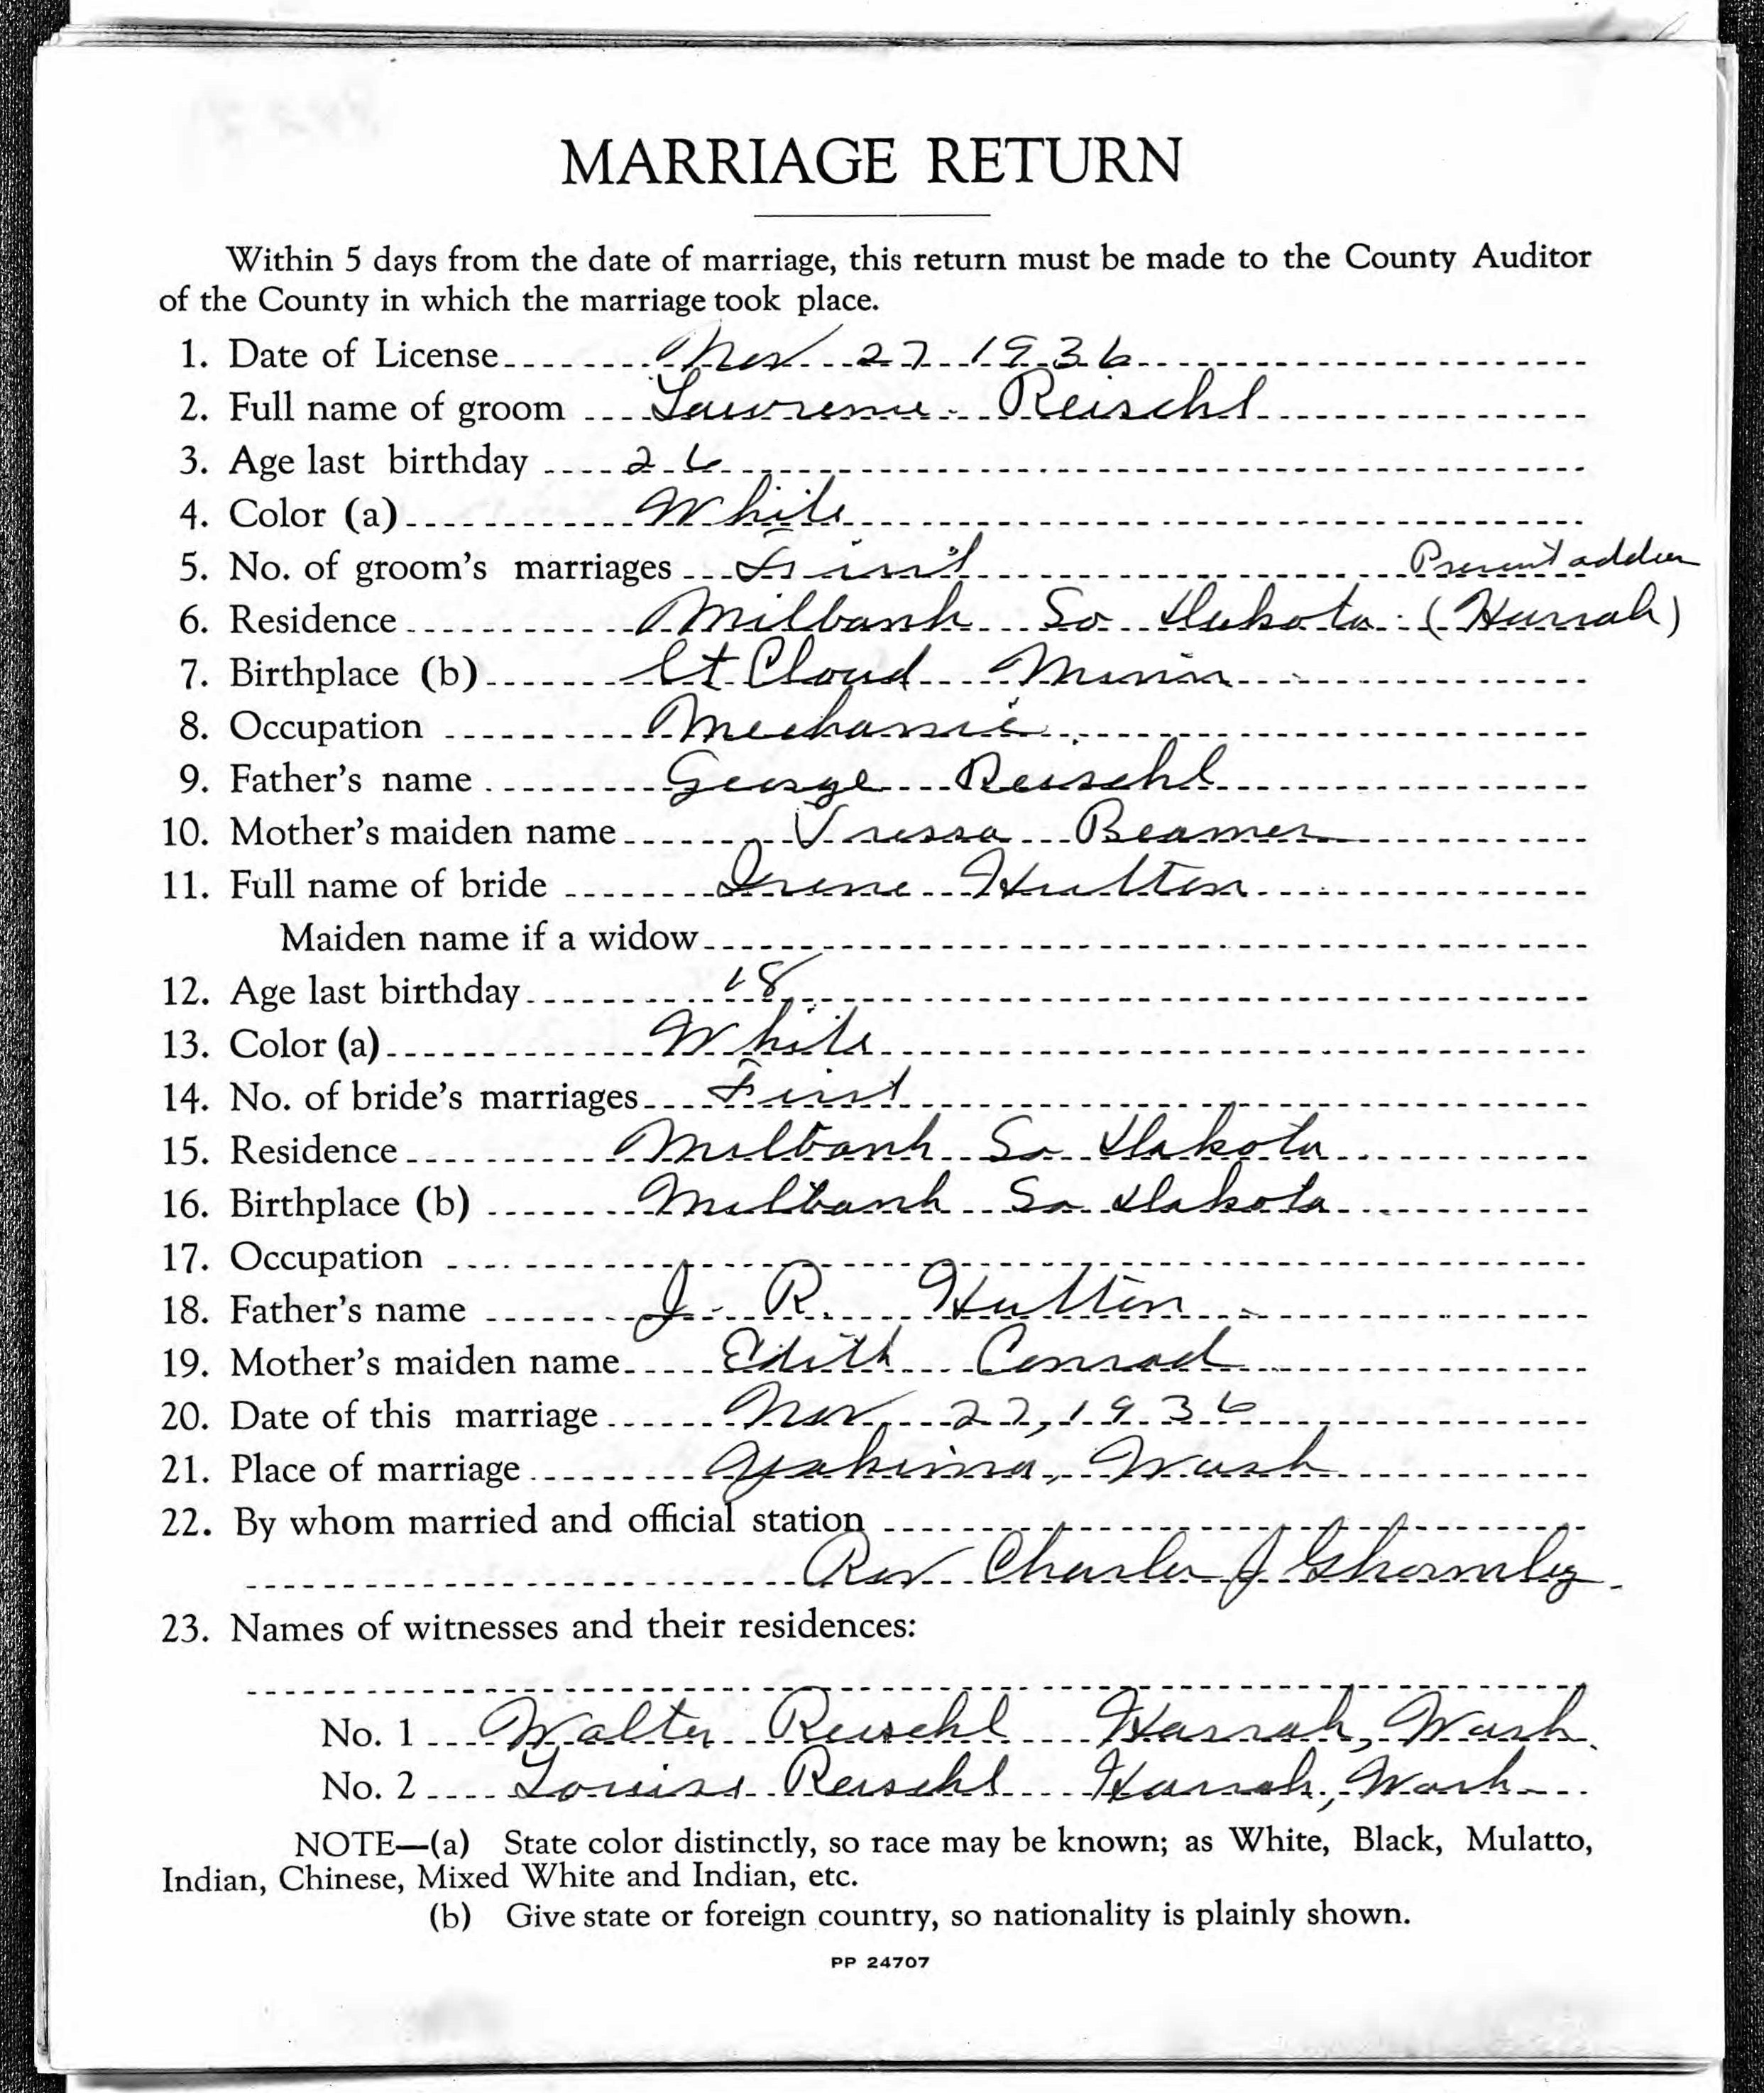 MARRIAGE RETURN
Within 5 days from the date of marriage, this return must be made to the County Auditor
of the County in which the marriage took place.
1. Date of License Nov 27 1936
2. Full name of groom Lawrence Reischl
3. Age last birthday 26
4. Color (a) White
5. No. of groom's marriages First Present address
6. Residence Milbank So Dakota (Harrah)
7. Birthplace (b) St Cloud Minn
8. Occupation Mechanic
9. Father's name George Reischl
10. Mother's maiden name Tressa Beamer
11. Full name of bride Irene Hulten
Maiden name if a widow
12. Age last birthday 18
13. Color (a) White
14. No. of bride's marriages First
15. Residence Milbank So Dakota
16. Birthplace (b) Milbank So Dakota
17. Occupation
18. Father's name J. R. Hulten
19. Mother's maiden name Edith Conrad
20. Date of this marriage Nov 27, 1936
21. Place of marriage Yakima, Wash
22. By whom married and official station
Rev Charles J Ghormley
23. Names of witnesses and their residences:
No. 1 Walter Reischl Harrah, Wash.
No. 2 Louise Reischl Harrah, Wash
NOTE—(a) State color distinctly, so race may be known; as White, Black, Mulatto,
Indian, Chinese, Mixed White and Indian, etc.
(b) Give state or foreign country, so nationality is plainly shown.
PP 24707